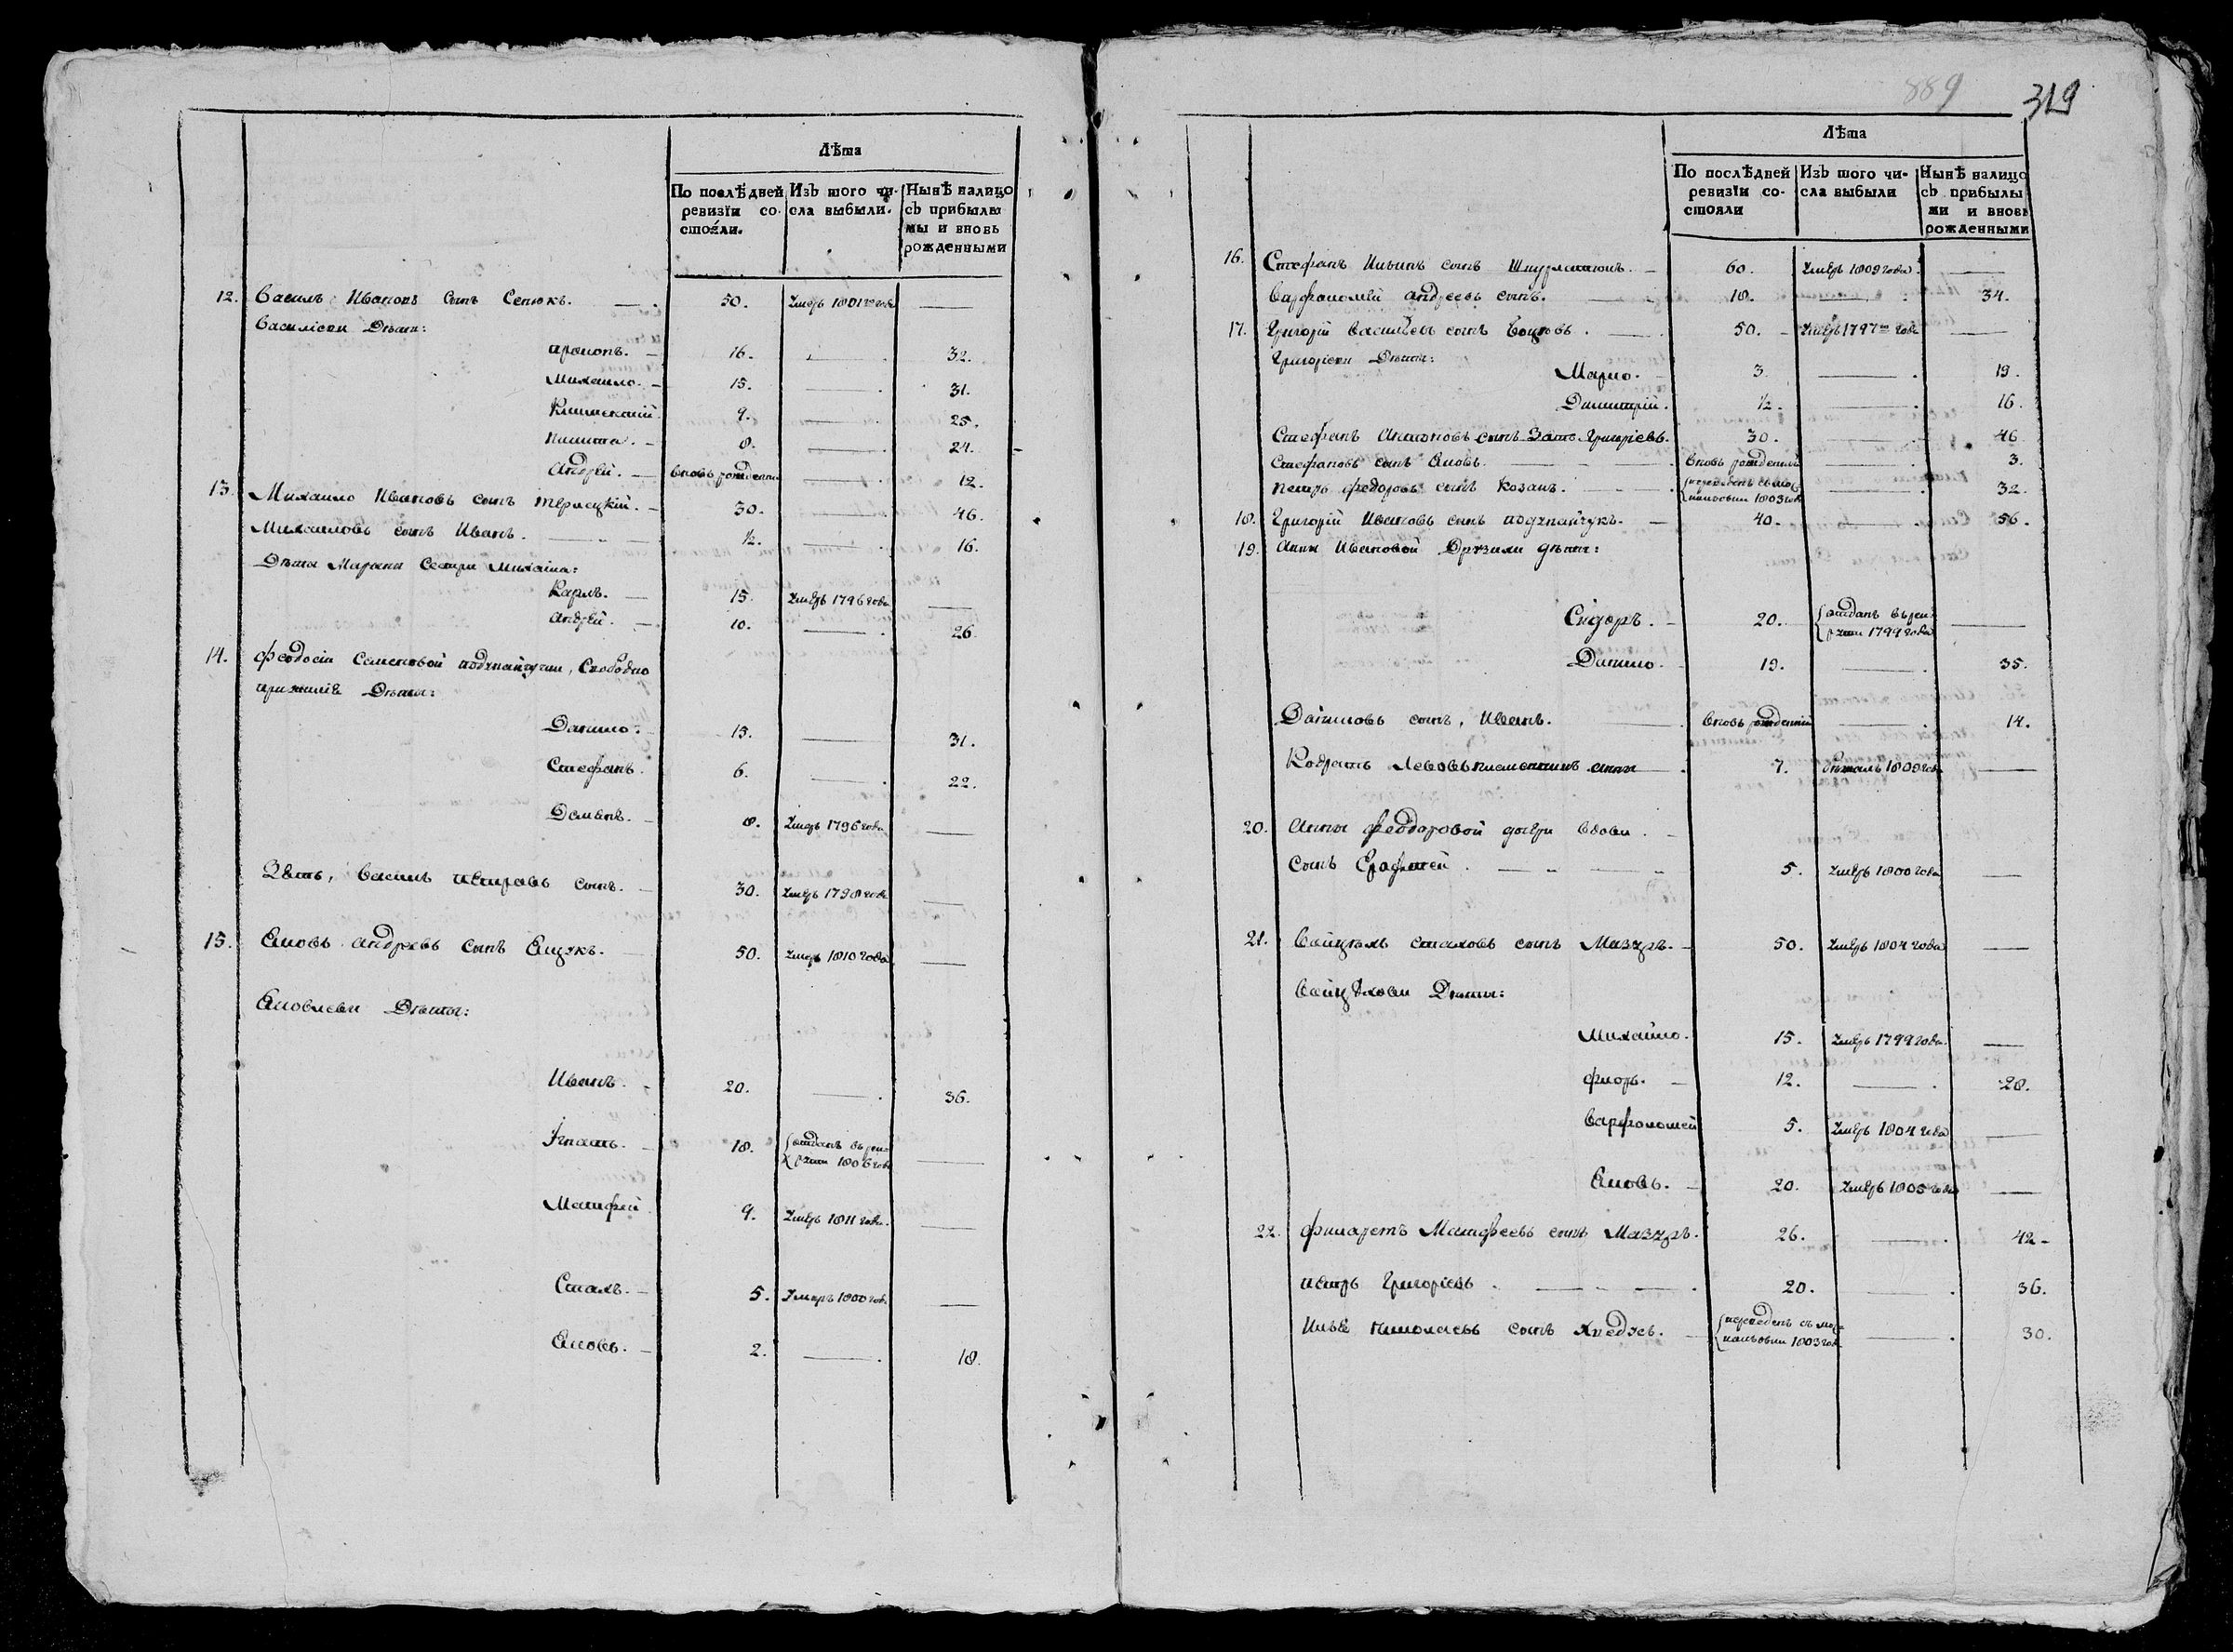 889 319
Лѣта
По послѣдней ревизїи состоя́ли.
Изъ того числа выбыли.
Нынѣ налицо съ прибылы мы и вновь рожденными
12. Василь Ивановъ сынъ Сенюкъ. 50. Умеръ 1801го года
Василіеви Дѣти:
16. 32.
Михаило. 15. 31.
9. 25.
Никита. 8. 24.
Андрей. вновь рожденны 12.
13. Михаило Ивановъ сынъ 30. 46.
Михаиловъ сынъ Иванъ. ½. 16.
Дѣти Марїи Сестри Михаила:
Карпъ. 15. Умеръ 1796 года
Андрей. 10. 26.
14. Феодосіи Семеновой
Дѣти:
Данило. 15. 31.
Стефанъ. 6. 22.
Деменъ. 8. Умеръ 1796 года
Зять, Василь Петровъ сынъ. 30. Умеръ 1798 года
15. Яковъ Андреевъ сынъ Яцукъ. 50. Умеръ 1810 года
Яковлеви Дѣти:
Иванъ. 20. 36.
Игнатъ. 18. отданъ въ рекруты 1806 года
Матфей 9. Умеръ 1811 года.
Стахъ. 5. Умеръ 1800 года
Яковъ. 2. 18.
Лѣта
По послѣдней ревизїи состояли
Изъ того числа выбыли
Нынѣ налицо съ прибылы ми и вновь рожденными
16. Стефанъ Ильинъ сынъ 60. Умеръ 1809 года.
Варфоломей Андреевъ сынъ. 18. 34.
17. Григорій Васильевъ сынъ 50. Умеръ 1797го года
Григоріеви Дѣти:
Марко. 3. 19.
Димитрій. ½. 16.
Стефанъ Антоновъ сынъ Зять Григоріевъ. 30. 46
Стефановъ сынъ Яковъ. вновь рожденный 3.
Петро Федоровъ сынъ Козакъ. 1803 года 32.
18. Григорій Ивановъ сынъ 40. 56.
19. Анни Ивановой дѣти:
Сидоръ. 20. отданъ въ рекруты 1799 года
Данило. 19. 35.
Даниловъ сынъ, Иванъ. вновь рожденный 14.
Кодратъ Левовъ Анны 7. бѣжалъ 1809 года
20. Анны Феодоровой дочери вдови.
Сынъ 5. Умеръ 1800 года
21. Войцѣхъ Стаховъ сынъ Мазуръ. 50. Умеръ 1804 года
Войцѣхови Дѣти:
Михайло. 15. Умеръ 1799 года.
Флоръ. 12. 28.
Варфоломей 5. Умеръ 1804 года
Яковъ. 20. Умеръ 1805 года
22. Филаретъ Матфеевъ сынъ Мазуръ. 26. 42.
Петръ Григоріевъ. 20. 36.
Илья Николаевъ сынъ переведенъ 1803 года 30.